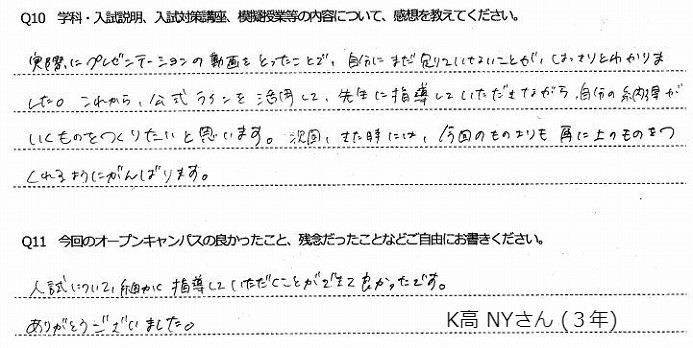 Q10 学科・入試説明、入試対策講座、模擬授業等の内容について、感想を教えてください。
実際にプレゼンテーションの動画をとったことで、自分にまだ足りていないことが、はっきりとわかりま
した。これから、公式ラインを活用して、先生に指導していただきながら、自分の納得が
いくものをつくりたいと思います。次回、また時には、今回のものよりも 更に上のものをつ
くれるようにがんばります。
Q11 今回のオープンキャンパスの良かったこと、残念だったことなどご自由にお書きください。
入試について、細かく指導していただくことができて良かったです。
ありがとうございました。
K高 NYさん (３年)